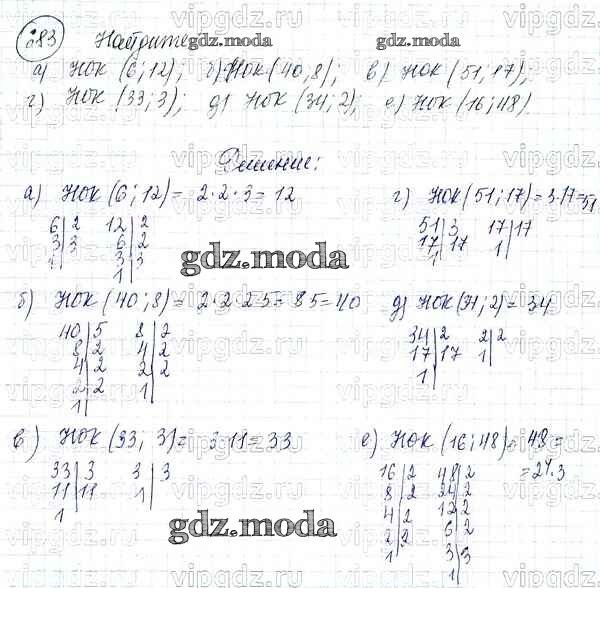 283 Найдите
а) НОК (6; 12); б) НОК (40, 8); в) НОК (51, 17),
г) НОК (33; 3); д) НОК (34; 2); е) НОК (16; 48).
Решение:
а) НОК (6; 12) = 2·2·3 = 12
6|2 12|2
3|3 6|2
1 3|3
1
г) НОК (51; 17) = 3·17 = 51
51|3 17|17
17|17 1
1
б) НОК (40; 8) = 2·2·2·5 = 8·5 = 40
40|5 8|2
8|2 4|2
4|2 2|2
2|2 1
1
д) НОК (34; 2) = 34
34|2 2|2
17|17 1
1
в) НОК (33; 3) = 3·11 = 33
33|3 3|3
11|11 1
1
е) НОК (16; 48) = 48 =
= 2⁴·3
16|2 48|2
8|2 24|2
4|2 12|2
2|2 6|2
1 3|3
1
gdz.moda
gdz.moda
gdz.moda
gdz.moda
gdz.moda
vipgdz.ru